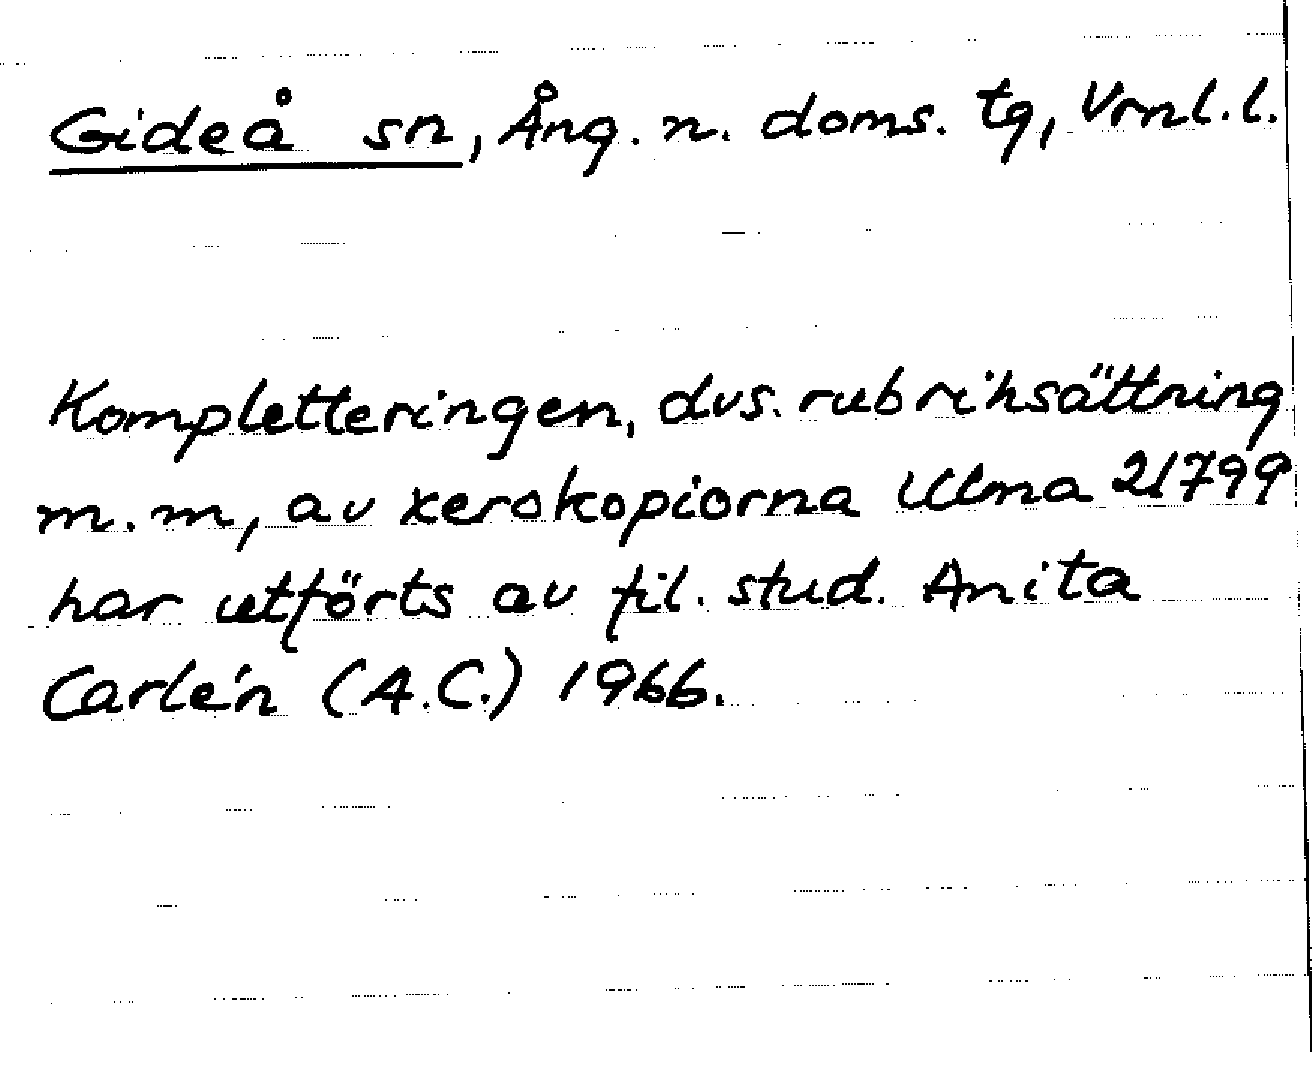 Gideå sn, Ång. n. doms. tg, Vrnl. l.
Kompletteringen, dvs. rubriksättning
m.m, av xerokopiorna Ulma 21799
har utförts av fil. stud. Anita
Carlén (A.C.) 1966.